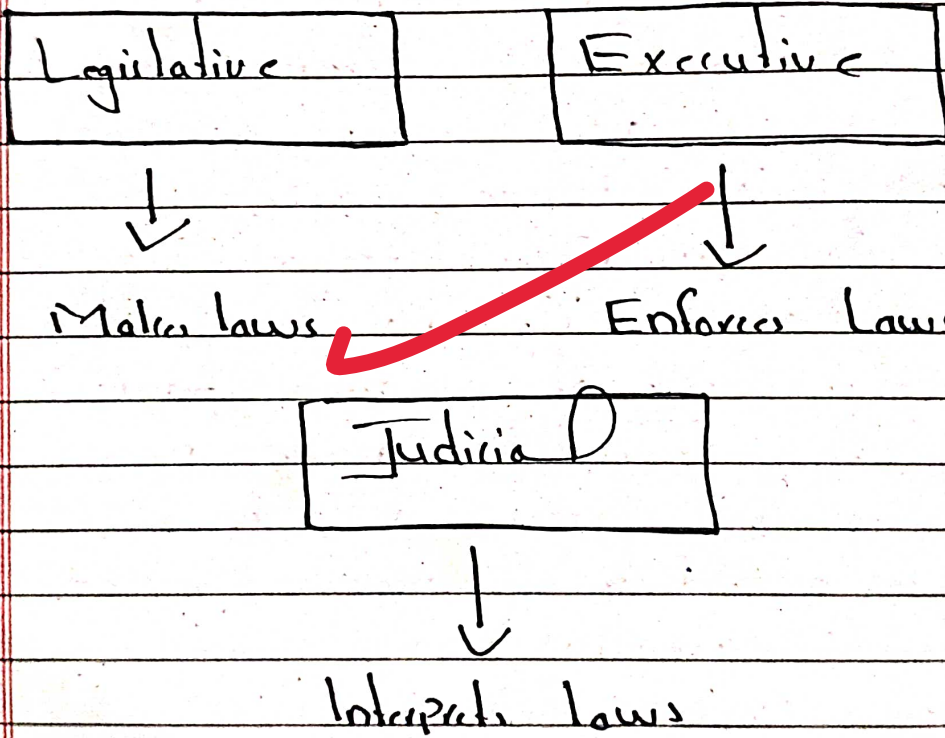 Legislative Executive
Makes laws Enforces Laws
Judicial
Interprets laws